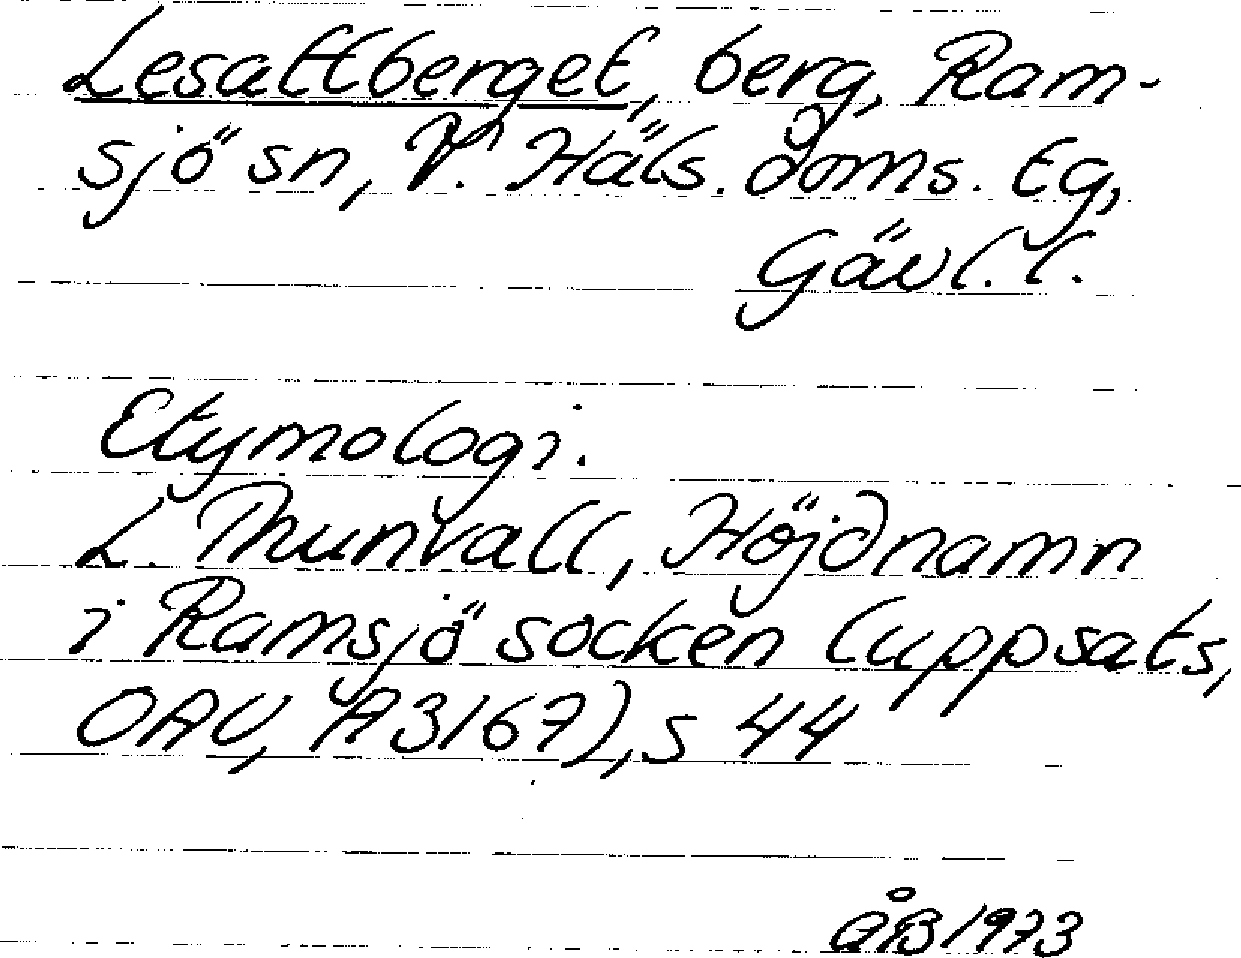 Lesattberget, berg, Ram-
sjö sn, V. Häls. doms. tg,
Gävl. l.
Etymologi.
L. Thunvall, Höjdnamn
i Ramsjö socken (uppsats,
OAU, A3167), s 44
ÅB 1973